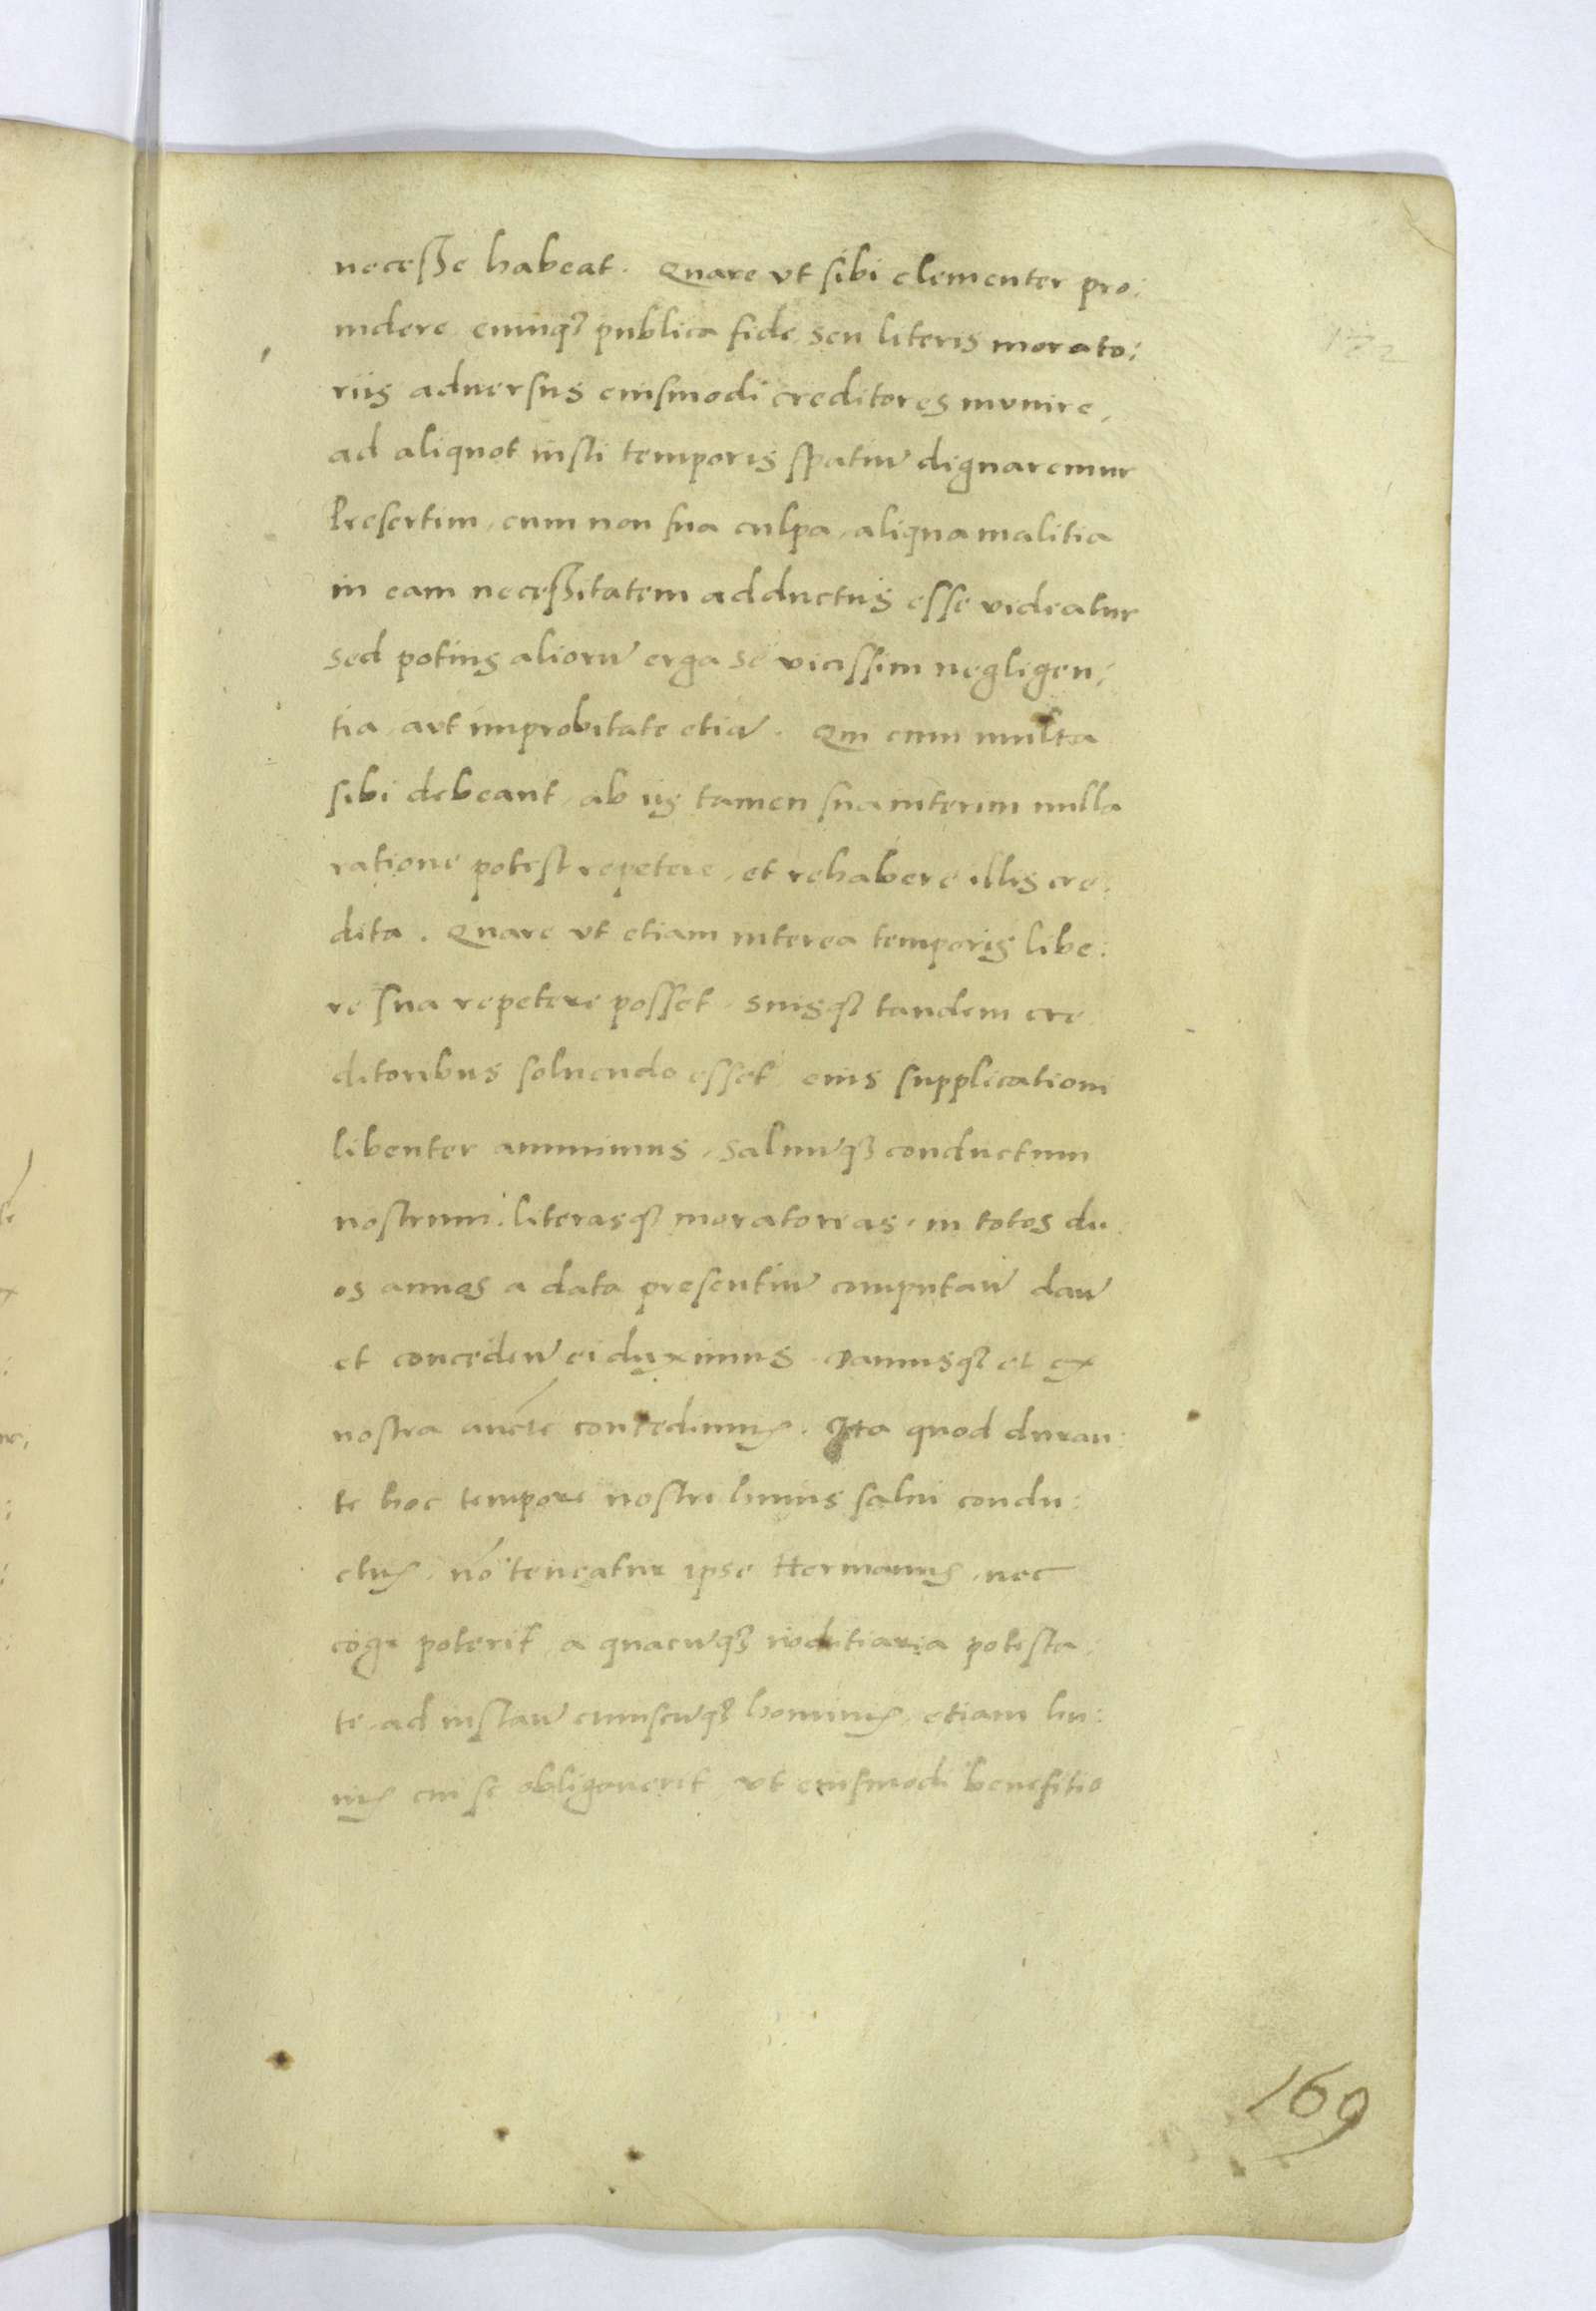 necesse habeat. Quare vt sibi clementer pro:
uidere eumq3 publica fide seu literis morato:
riis aduersus eiusmodi creditores munire,
ad aliquot iusti temporis spatiũ dignaremur
Presertim, cum non sua culpa, aliqua malitia
in eam necessitatem adductus esse videatur
sed potius alioru͂ erga se vicissim negligen:
tia, aut improbitate etia͂. Qui cum multa
sibi debeant, ab iis tamen sua interim nulla
ratione potest repetere, et rehabere illis cre:
dita. Quare vt etiam interea temporis libe:
re sua repetere posset. suisq3 tandem cre
ditoribus soluendo esset eius supplicationi
libenter annuimus, saluu͂q3 conductum
nostrum: literasq3 moratorias, in totos du
os annos a data presentiu͂ computan͂ dan͂
et conceden͂ ei duximus. Damusq3 et ex
nostra aucte concedimus. Ita quod duran:
te hoc tempore nostri huius salui condu:
ctus, nõ teneatur ipse Hermannus, nec
cogi poterit, a quacu͂q3 iudiciaria potesta:
te, ad instan͂ cuiuscu͂q3 hominis, etiam hu:
ius cui se obligauerit, vt eiusmodi benefitio
172
169